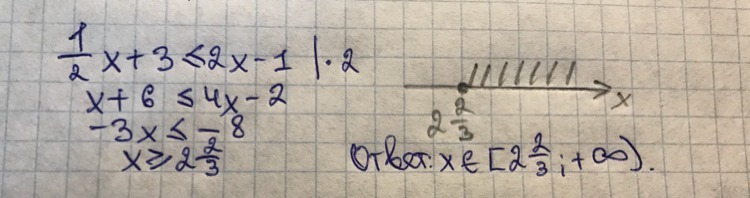 1/2 x + 3 ≤ 2x - 1 | · 2
x + 6 ≤ 4x - 2
-3x ≤ -8
x ≥ 2 2/3
2 2/3
x
Ответ: x ∈ [2 2/3; +∞).